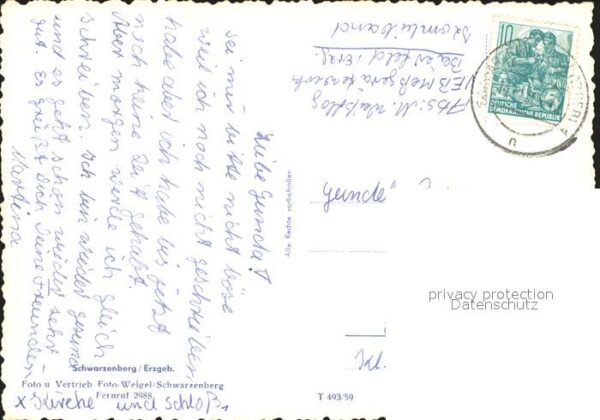 Liebe Gunda!
Sei mir bitte nicht böse
weil ich noch nicht geschrieben
habe aber ich habe bis jetzt
noch keine Zeit gehabt.
Aber morgen werde ich gleich
schreiben. Ich bin wieder gesund
und es geht schon wieder sehr
gut. Es grüßt Dich Deine Freundin
Martina
Abs: M.
VEB Meßgerätewerk
Beierfeld / Erzg.
10
DEUTSCHE
DEMOKRATISCHE REPUBLIK
Alle Rechte vorbehalten
privacy protection
Datenschutz
Kl.
Schwarzenberg / Erzgeb.
Foto u Vertrieb Foto-Weigel/Schwarzenberg
Fernruf 2988
T 493/59
x Kirche und Schloß